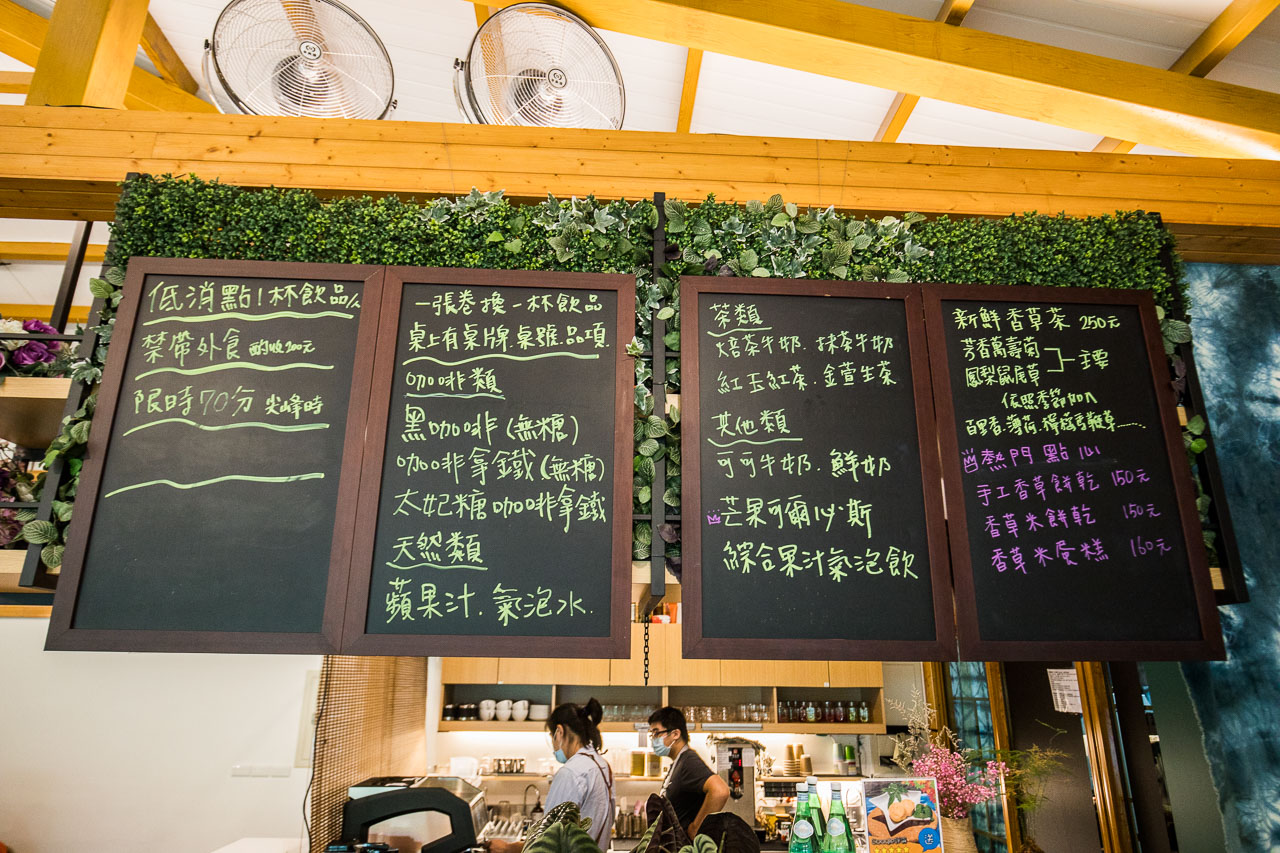 低消點1杯飲品/人
禁帶外食 酌收200元
限時70分 尖峰時
一張卷換一杯飲品
桌上有桌牌.桌號.品項.
咖啡類
黑咖啡(無糖)
咖啡拿鐵(無糖)
太妃糖咖啡拿鐵
天然類
蘋果汁.氣泡水.
茶類
焙茶牛奶.抹茶牛奶
紅玉紅茶.金萱生茶
其他類
可可牛奶.鮮奶
芒果可爾必斯
綜合果汁氣泡飲
新鮮香草茶 250元
芳香萬壽菊
鳳梨鼠尾草
壺
依照季節加入
百里香.薄荷.檸檬馬鞭草......
熱門點心
手工香草餅乾 150元
香草米餅乾 150元
香草米蛋糕 160元
送